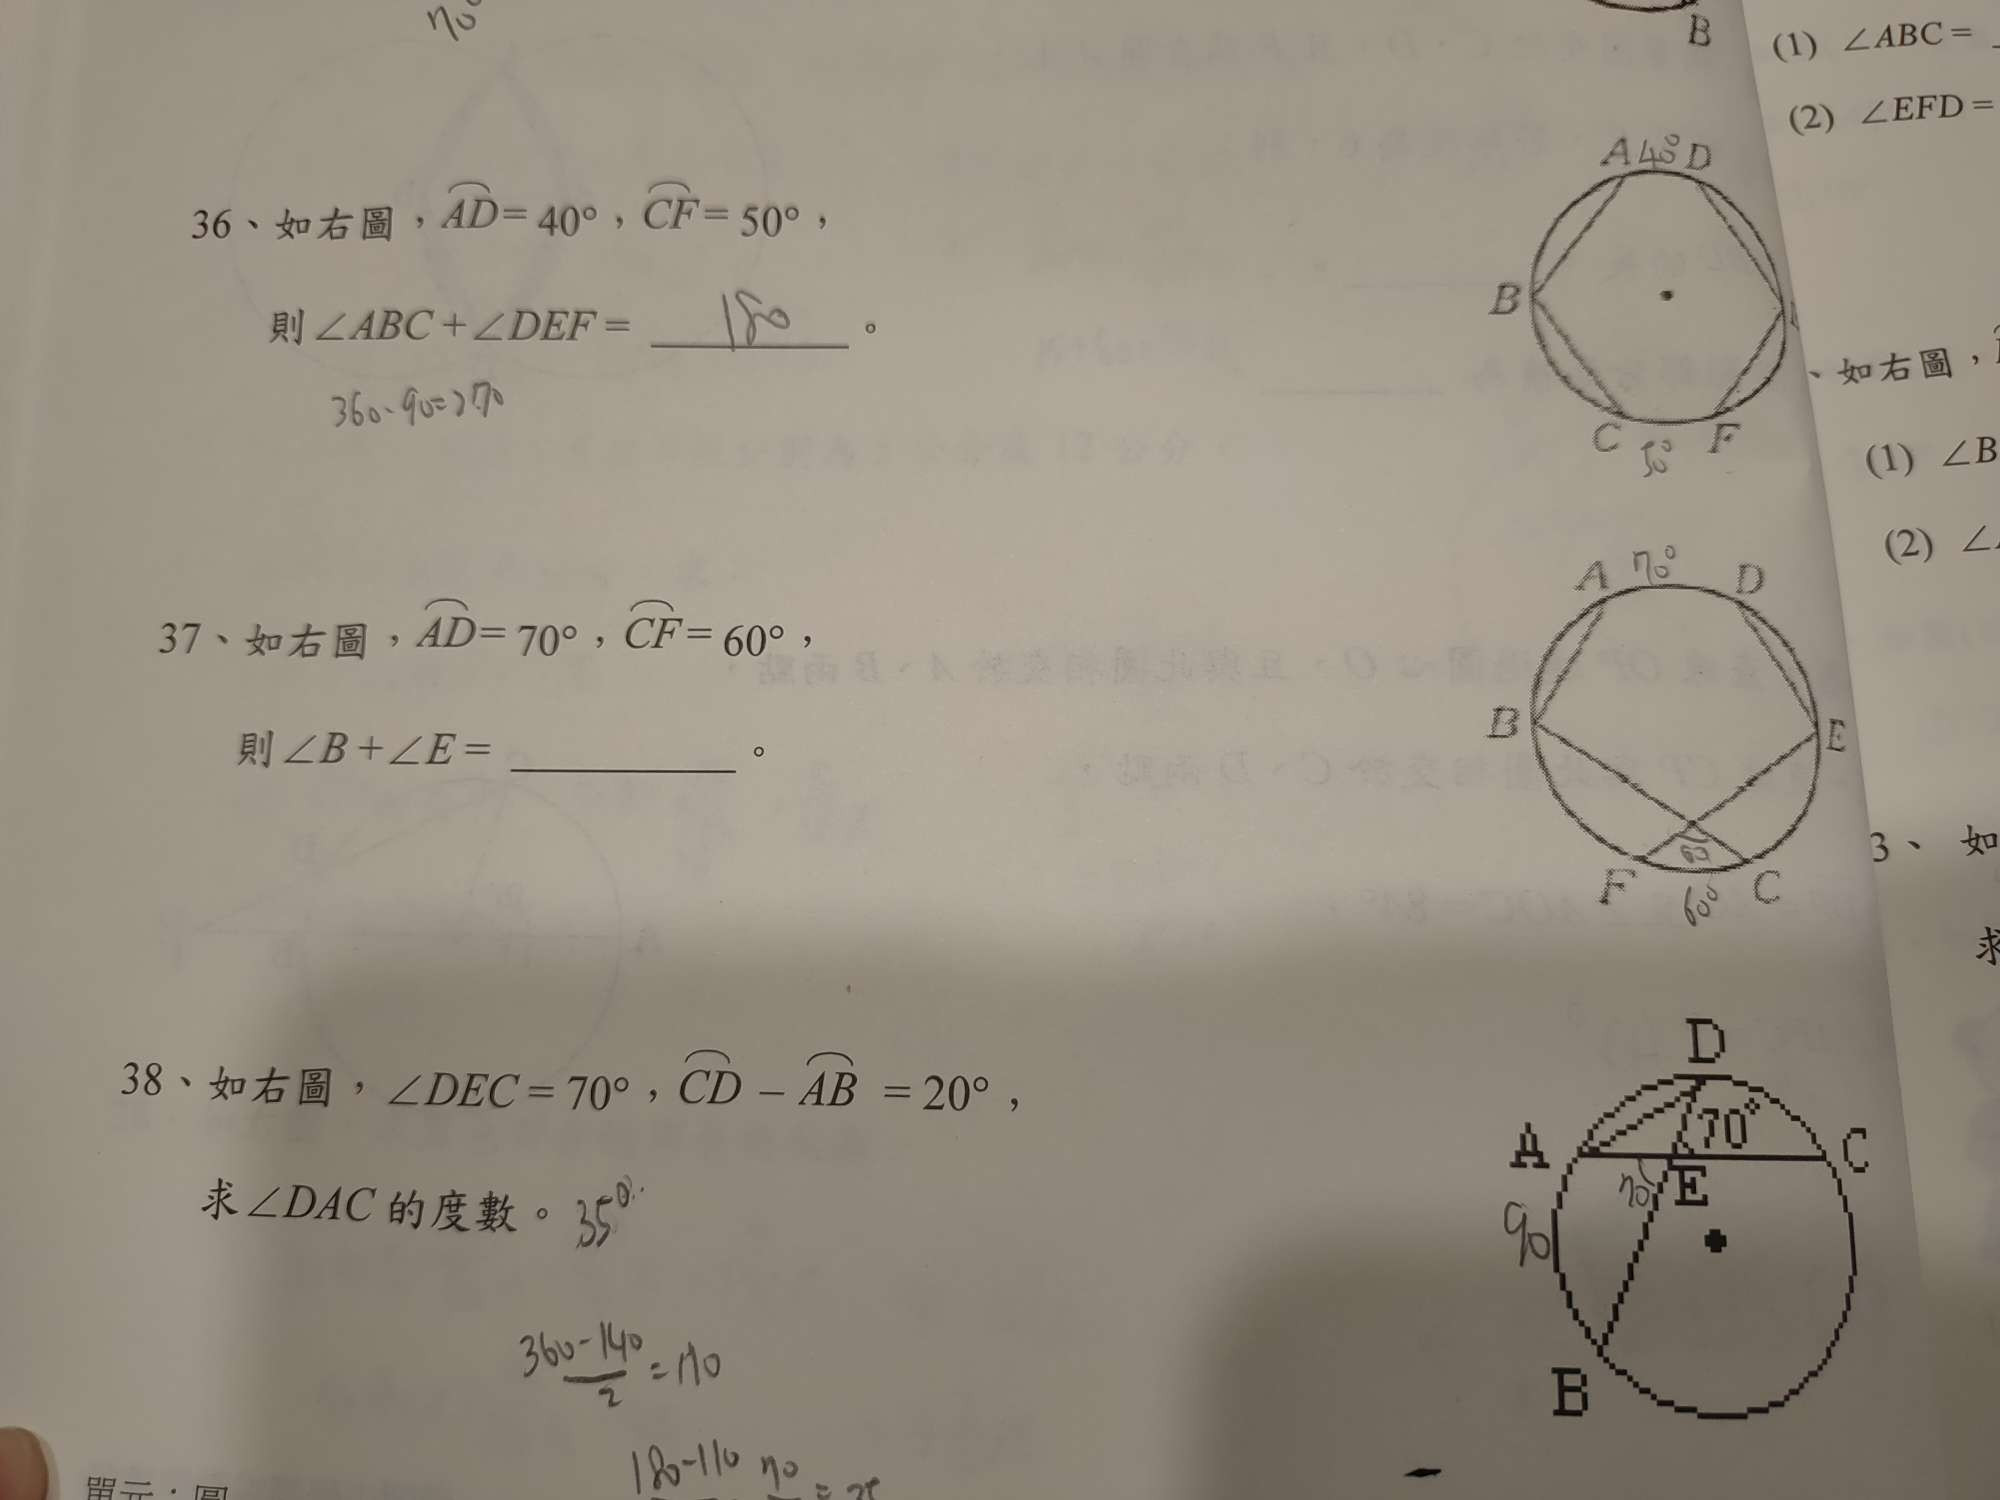 70°
B
(1) ∠ABC=
(2) ∠EFD=
36、如右圖，AD=40°，CF=50°，
則∠ABC+∠DEF= 180 。
360-90=270
A 40° D
B
C 50° F
、如右圖，
(1) ∠B
(2) ∠
37、如右圖，AD=70°，CF=60°，
則∠B+∠E= 。
A 70° D
B E
F 60° C
3、如
求
38、如右圖，∠DEC=70°，CD－AB =20°，
求∠DAC的度數。35°
D
70°
A C
70 E
90
B
360-140
2
=110
180-110 70
單元：圓